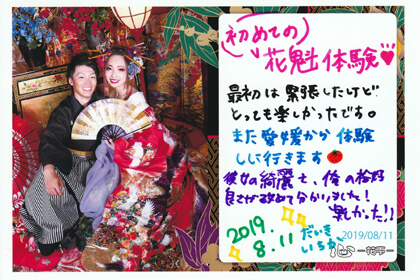 初めての
花魁体験
最初は緊張したけど
とっても楽しかったです。
また愛媛から体験
しに行きます
彼女の綺麗さ、俺の格好
良さが改めて分かりました!
楽しかった!!
2019.
8.11
2019/08/11